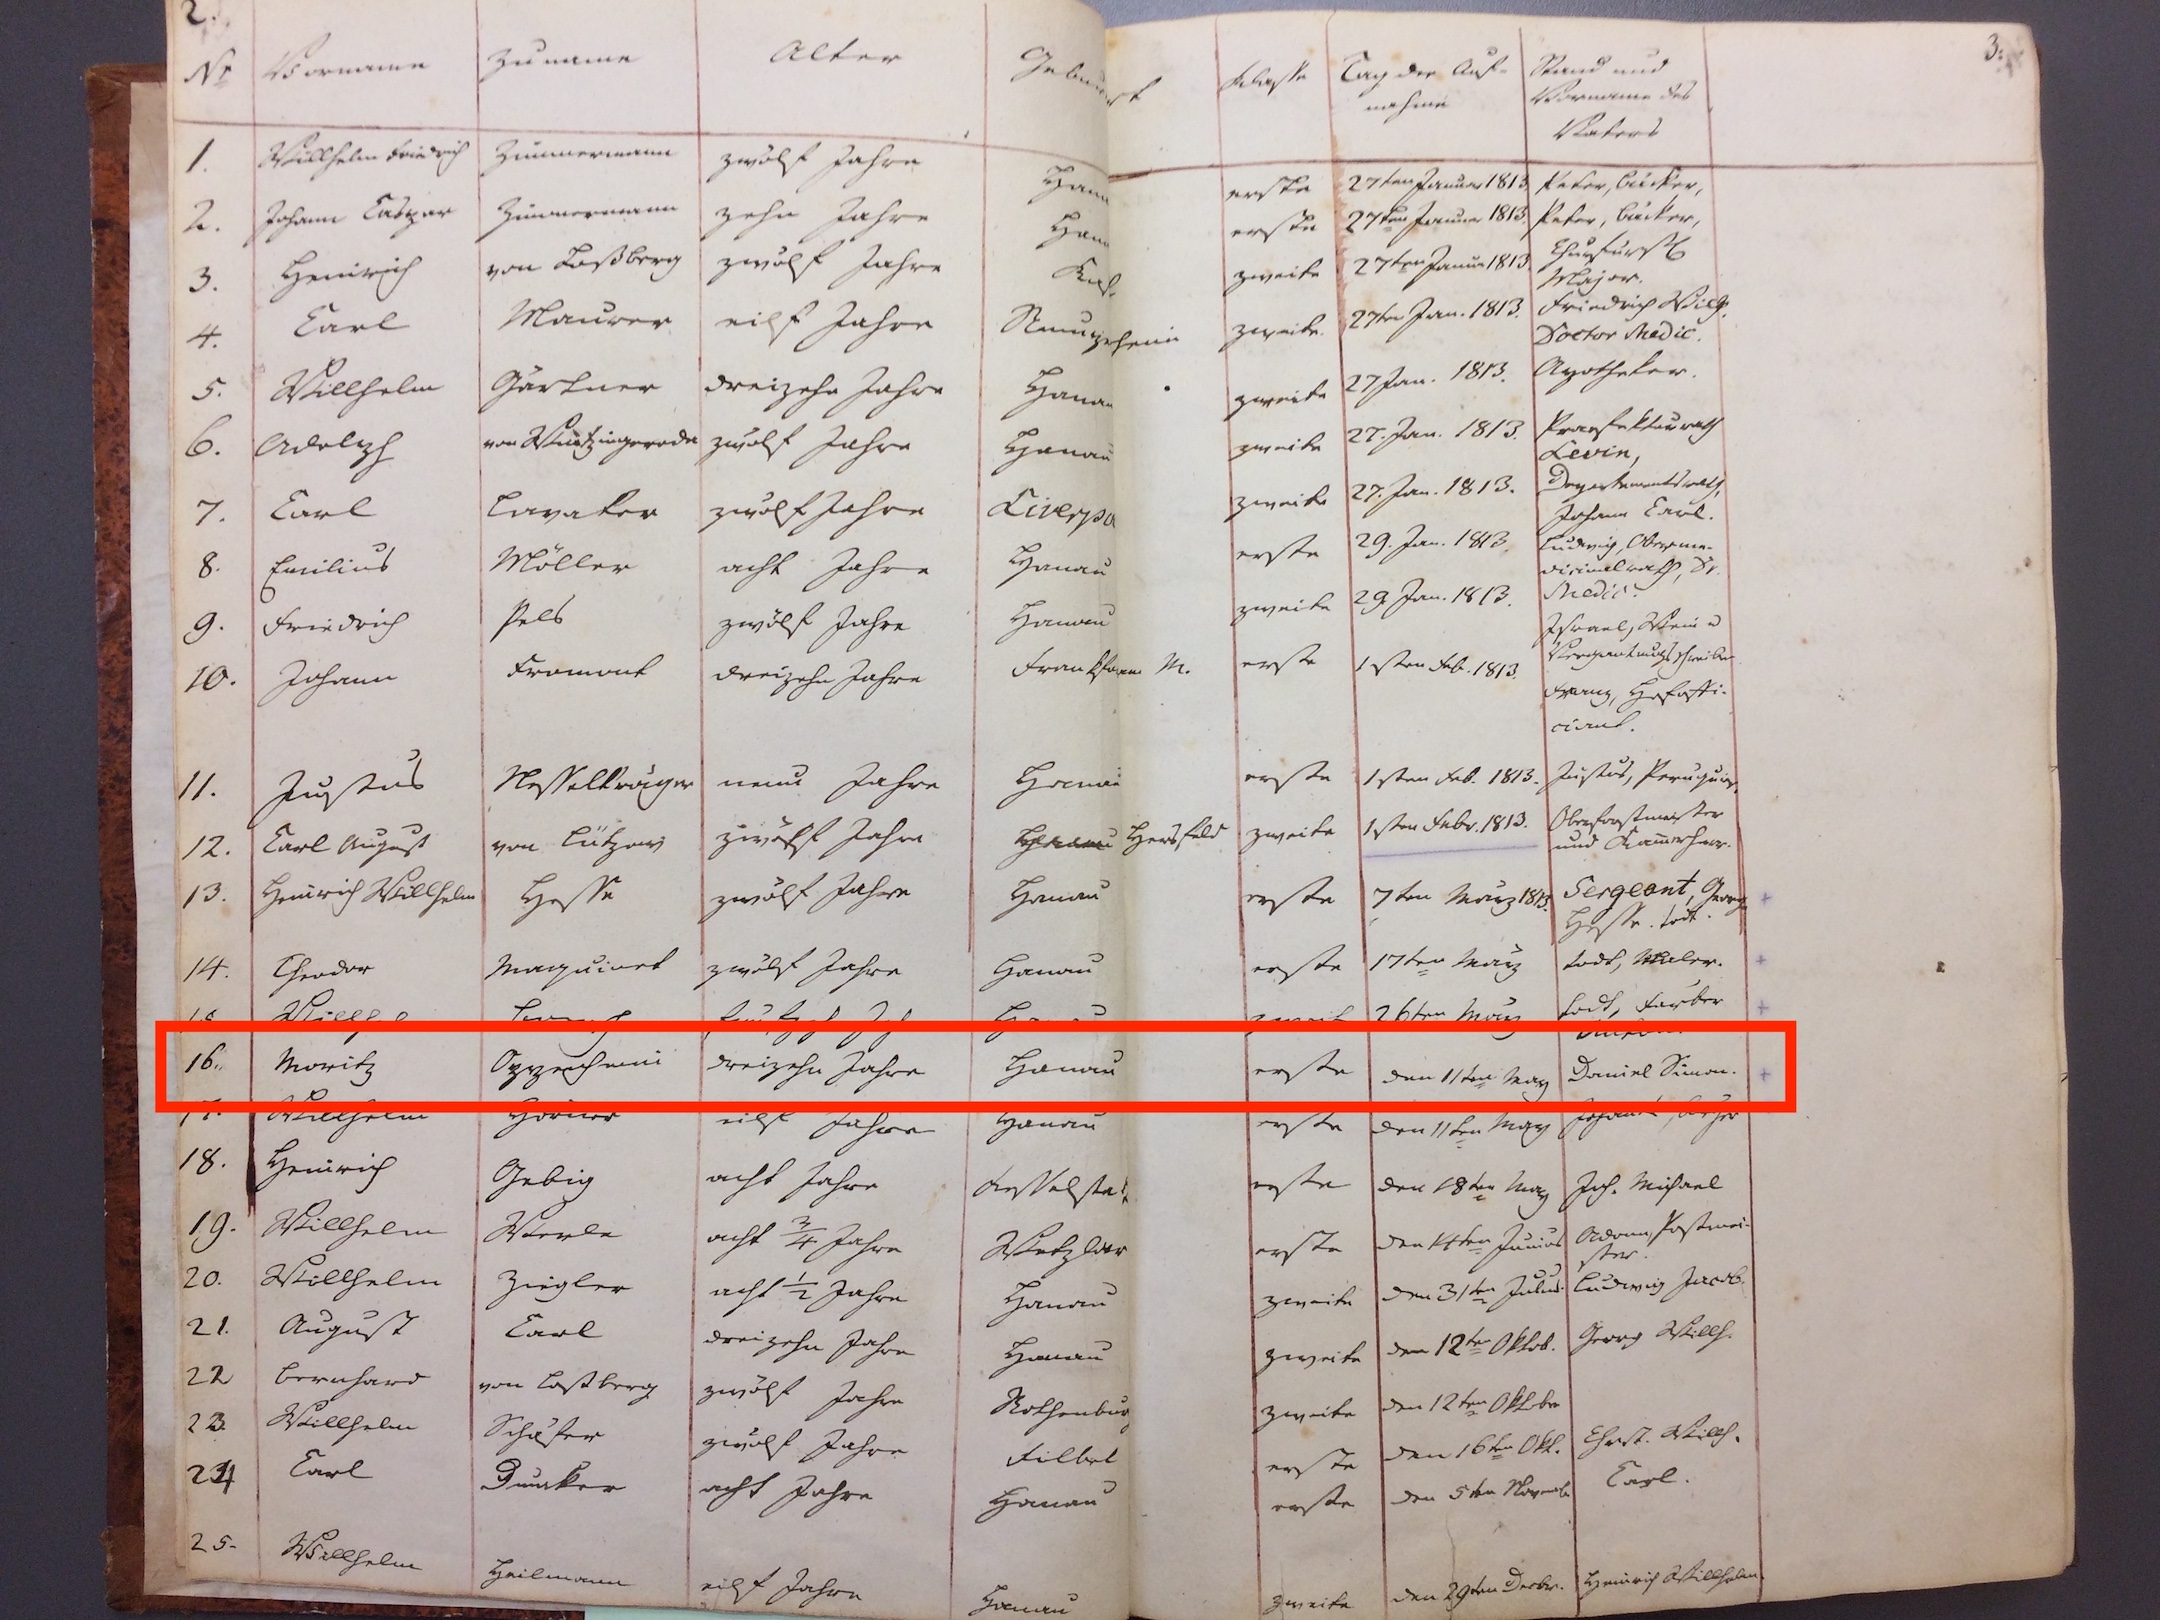 2. 3.
Nr Vorname Zuname Alter Geburtsort Klasse Tag der Auf- Stand und
nahme Vorname des
Vaters
1. Willhelm Friedrich Zimmermann zwölf Jahre Hanau erste 27ten Januar 1813. Peter, Bäcker,
2. Johann Caspar Zimmermann zehn Jahre Hanau erste 27ten Januar 1813. Peter, Bäcker,
3. Heinrich von Loßberg zwölf Jahre zweite 27ten Januar 1813. Churfürstl
Major.
4. Carl Maurer eilf Jahre zweite 27ten Jan. 1813. Friedrich Willh.
Doctor Medic.
5. Willhelm Gärtner dreizehn Jahre Hanau zweite 27 Jan. 1813. Apotheker.
6. Adolph von Wintzingerode zwölf Jahre Hanau zweite 27. Jan. 1813. Praefekturrath
Levin,
7. Carl Lavater zwölf Jahre Liverpo zweite 27. Jan. 1813. Departementsrath,
Johann Carl.
8. Emilius Möller acht Jahre Hanau erste 29. Jan. 1813. Ludwig, Oberme-
dicinalrath, Dr.
Medic.
9. Friedrich Pels zwölf Jahre Hanau zweite 29. Jan. 1813. Israel, Wein u
10. Johann Fromont dreizehn Jahre Frankfurt am M. erste 1sten Feb. 1813. Franz, Hofoffi-
ciant.
11. Justus Nesselträger neun Jahre Hanau erste 1sten Feb. 1813. Justus, Peruquier.
12. Carl August von Lützow zwölf Jahre Hanau Hersfeld zweite 1sten Febr. 1813. Oberforstmeister
und Kammerherr.
13. Heinrich Willhelm Hesse zwölf Jahre Hanau erste 7ten März 1813. Sergeant, Georg +
Hesse. todt.
14. Theodor Maquinet zwölf Jahre Hanau erste 17ten März todt, Maler. +
26ten März todt, Färber +
16. Moritz Oppenheim dreizehn Jahre Hanau erste den 11ten May Daniel Simon. +
17. Willhelm Horner eilf Jahre Hanau erste den 11ten May
18. Heinrich Gebig acht Jahre Kesselstadt erste den 18ten May Joh. Michael
19. Willhelm Werle acht 3/4 Jahre Wetzlar erste den 14ten Junius Adam, Postmei-
ster.
20. Willhelm Ziegler acht 1/2 Jahre Hanau zweite den 31ten Julius. Ludwig Jacob.
21. August Carl dreizehn Jahre Hanau zweite den 12ten Oktob. Georg Willh.
22 Bernhard von Loßberg zwölf Jahre Rothenburg zweite den 12ten Oktober
23. Willhelm Schäfer zwölf Jahre Filbel erste den 16ten Okt. Christ. Willh.
24 Carl Duncker acht Jahre Hanau erste den 5ten Novemb. Carl.
25. Willhelm Heilmann eilf Jahre Hanau zweite den 29ten Decbr. Heinrich Willhelm.